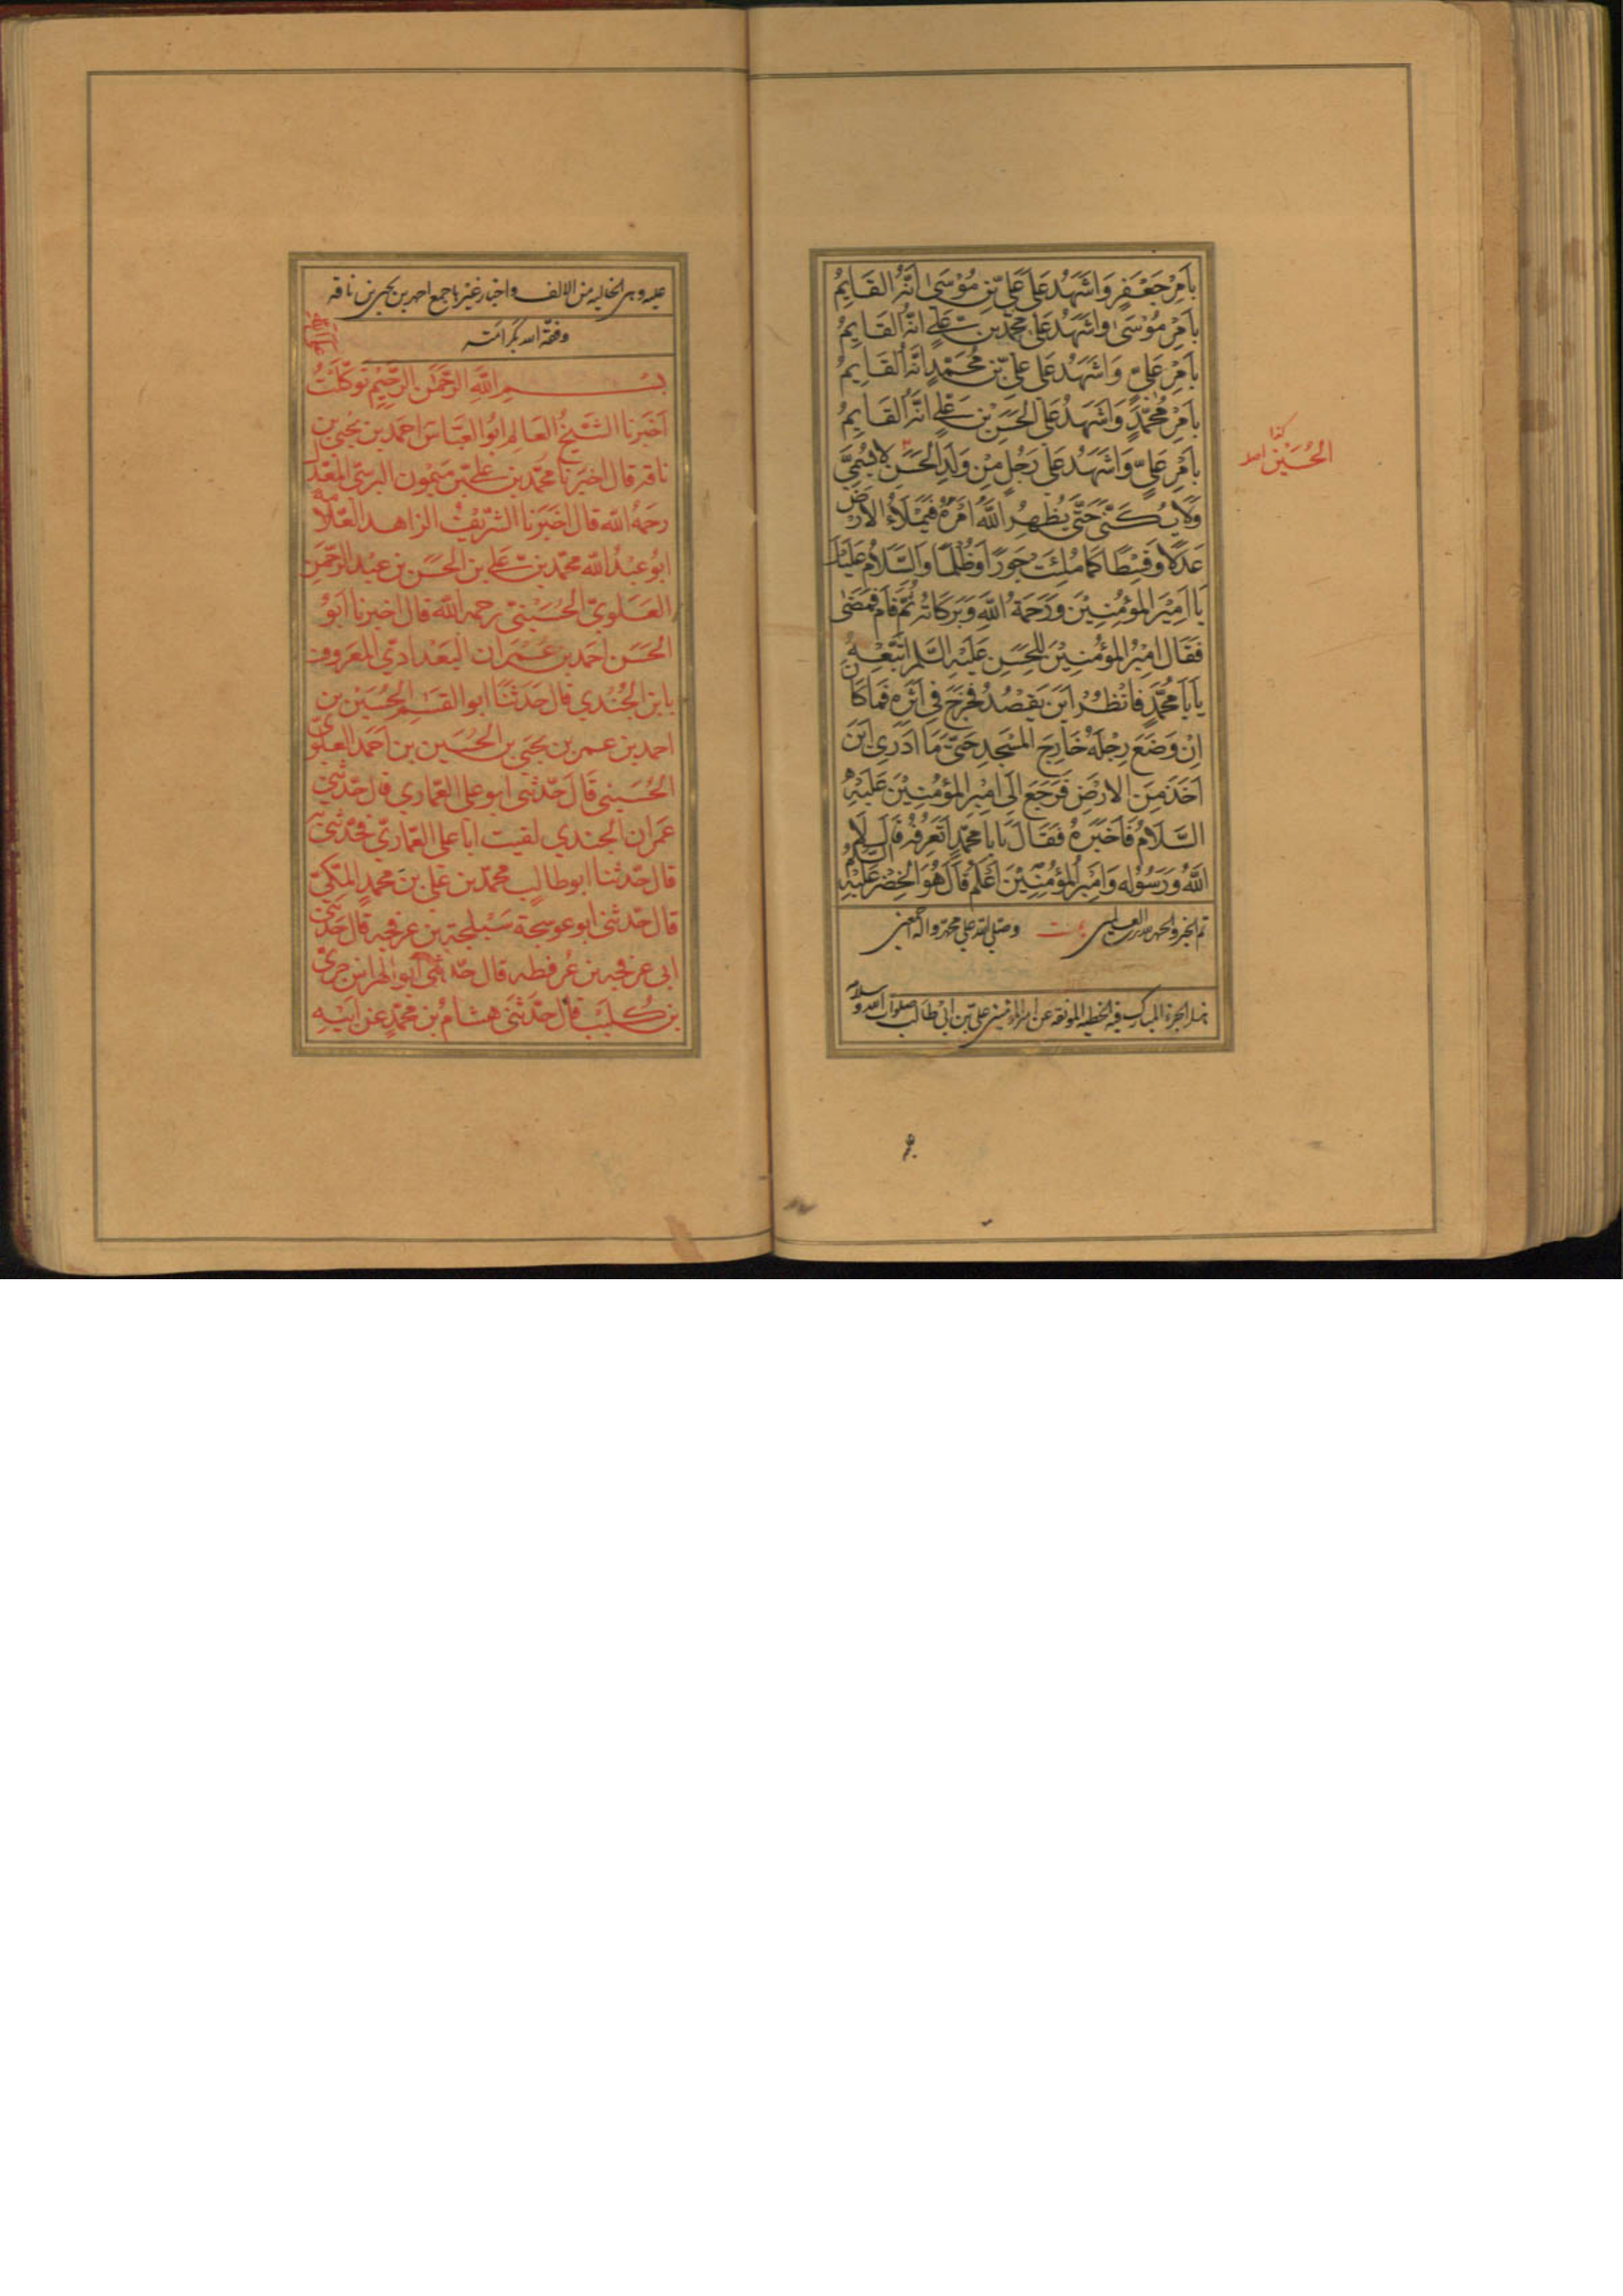 بِاَمْرِ جَعْفَرٍ وَاَشْهَدُ عَلَى عَلِيِّ بْنِ مُوْسَى اَنَّهُ القَايِمُ
بِاَمْرِ مُوْسَى وَاَشْهَدُ عَلَى مُحَمَّدِ بْنِ عَلِي اَنَّهُ القَايِمُ
بِاَمْرِ عَلِيٍّ وَاَشْهَدُ عَلَى عَلِيِّ بْنِ مُحَمَّدٍ اَنَّهُ القَايِمُ
بِاَمْرِ مُحَمَّدٍ وَاَشْهَدُ عَلَى الحَسَنِ بْنِ عَلِي اَنَّهُ القَايِمُ
بِاَمْرِ عَلِيٍّ وَاَشْهَدُ عَلَى رَجُلٍ مِنْ وَلَدِ الحَسَنِ لَا يُسَمَّى
وَلَا يُكَنَّى حَتَّى يُظْهِرَ اللهُ اَمْرَهُ فَيَمْلَاءُ الاَرْضَ
عَدْلًا وَقِسْطًا كَمَا مُلِئَتْ جَوْرًا وَظُلْمًا وَالسَّلَامُ عَلَيْكَ
يَا اَمِيْرَ المُؤْمِنِيْنَ وَرَحْمَةُ اللهِ وَبَرَكَاتُه ثُمَّ قَامَ فَمَضَى
فَقَالَ اَمِيْرُ المُؤْمِنِيْنَ لِلحَسَنِ عَلَيْهِ السَّلم اتْبَعْهُ
يَابَا مُحَمَّدٍ فَانْظُرْ اَيْنَ يَقْصُدُ فَخَرَجَ فِي اَثَرِهِ فَمَا كَانَ
اِنْ وَضَعَ رِجْلَهُ خَارِجَ المَسْجِدِ حَتَّى مَا اَدْرِي اَيْنَ
اَخَذَ مِنَ الاَرْضِ فَرَجَعَ اِلَى اَمِيْرِ المُؤْمِنِيْنَ عَلَيْهِ
السَّلَامُ فَاَخْبَرَهُ فَقَالَ يَابَا مُحَمَّدٍ اَتَعْرِفُهُ قَالَ
اللهُ وَرَسُوْلُه وَاَمِيْرُ المُؤْمِنِيْنَ اَعْلَمُ قَالَ هُوَ الخِضْرُ عَلَيْهِ السَّلَامُ
تم الخبر والحمد لله رب العالمين وصلى الله على محمد وآله اجمعين
هذا الجزء المبارك فيه الخطبة المونقه عن امير المؤمنين علي بن ابي طالب صلوات الله وسلامه
كذا
الحُسَيْن
عليه وهي الخاليه من الالف واخبار غيرها جمع احمد بن يحيى بن ناقه
وفقه الله بكرامته
بِسْمِ اللهِ الرَّحْمٰنِ الرَّحِيْمِ تَوَكَّلْتُ
اَخْبَرنا الشَّيْخُ العَالِمُ ابُو العَبَّاس احمد بن يحيى بن
ناقه قال اخبرنا محمّد بن علي بن ميمون النرسي المعدل
رحمهُ الله قال اخبرنا الشريف الزاهد العلامه
ابو عبد الله محمّد بن علي بن الحسن بن عبد الرحمن
العلويّ الحُسَيْنيّ رحمه الله قال اخبرنا ابو
الحسن احمد بن عمران البغدادي المعروف
بابن الجُندي قال حدثنا ابو القسم الحُسَيْن بن
احمد بن عمر بن يحيى بن الحُسَين بن احمد العلويّ
الحُسَيني قال حدّثني ابو علي العمّاري قال حدّثني
عمران الجندي لقيت ابا علي العمّاريّ فحدّثني
قال حدّثنا ابو طالب محمّد بن علي بن محمد المكيّ
قال حدّثني ابو عوسجة سبلجة بن عرفجه قال حدثني
ابي عرفجه بن عُرفطه قال حدّثني ابو الهراس جري
بن كُليْب قال حدّثني هشام بن محمّد عن ابيه